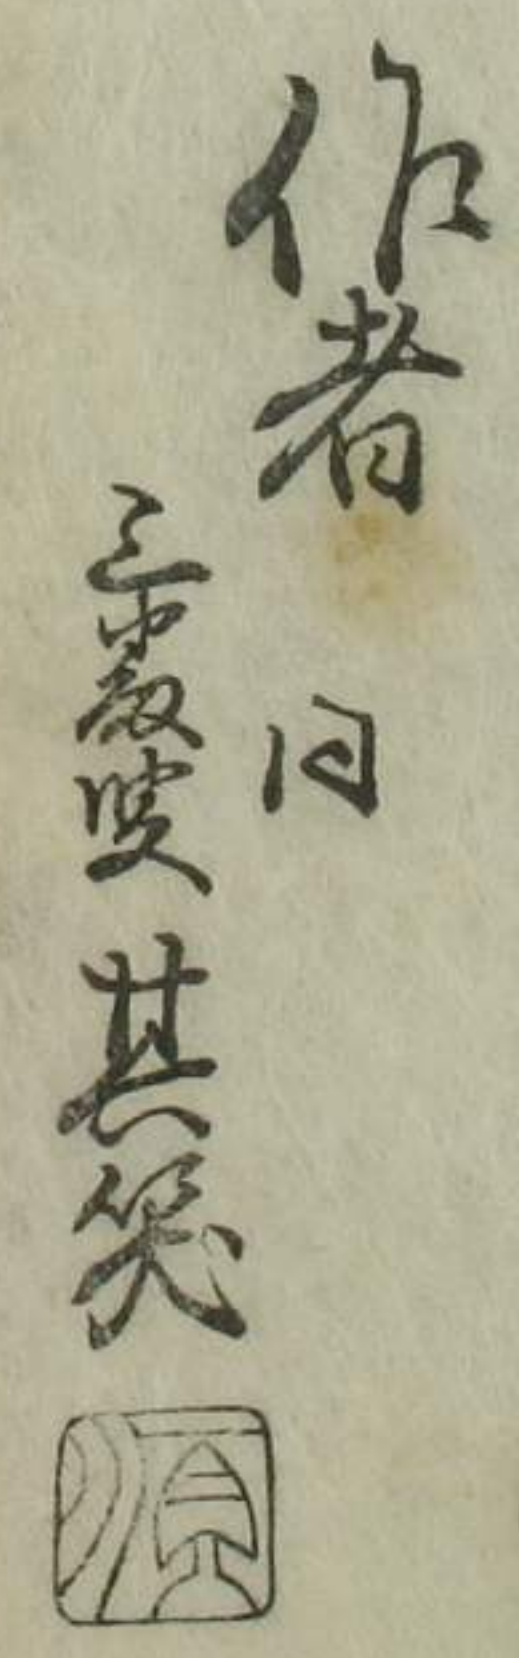 作者 曰
三叟 其笑